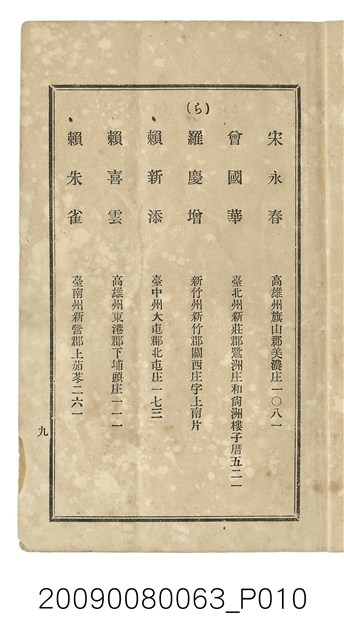 宋永春 高雄州旗山郡美濃庄一〇八一
曾國華 臺北州新莊郡鷺洲庄和尙洲樓子厝五二一
(ら)
羅慶增 新竹州新竹郡關西庄字上南片
賴新添 臺中州大屯郡北屯庄一七三
賴喜雲 高雄州東港郡下埔頭庄一一一
賴朱雀 臺南州新營郡上茄苳二六一
九
20090080063_P010